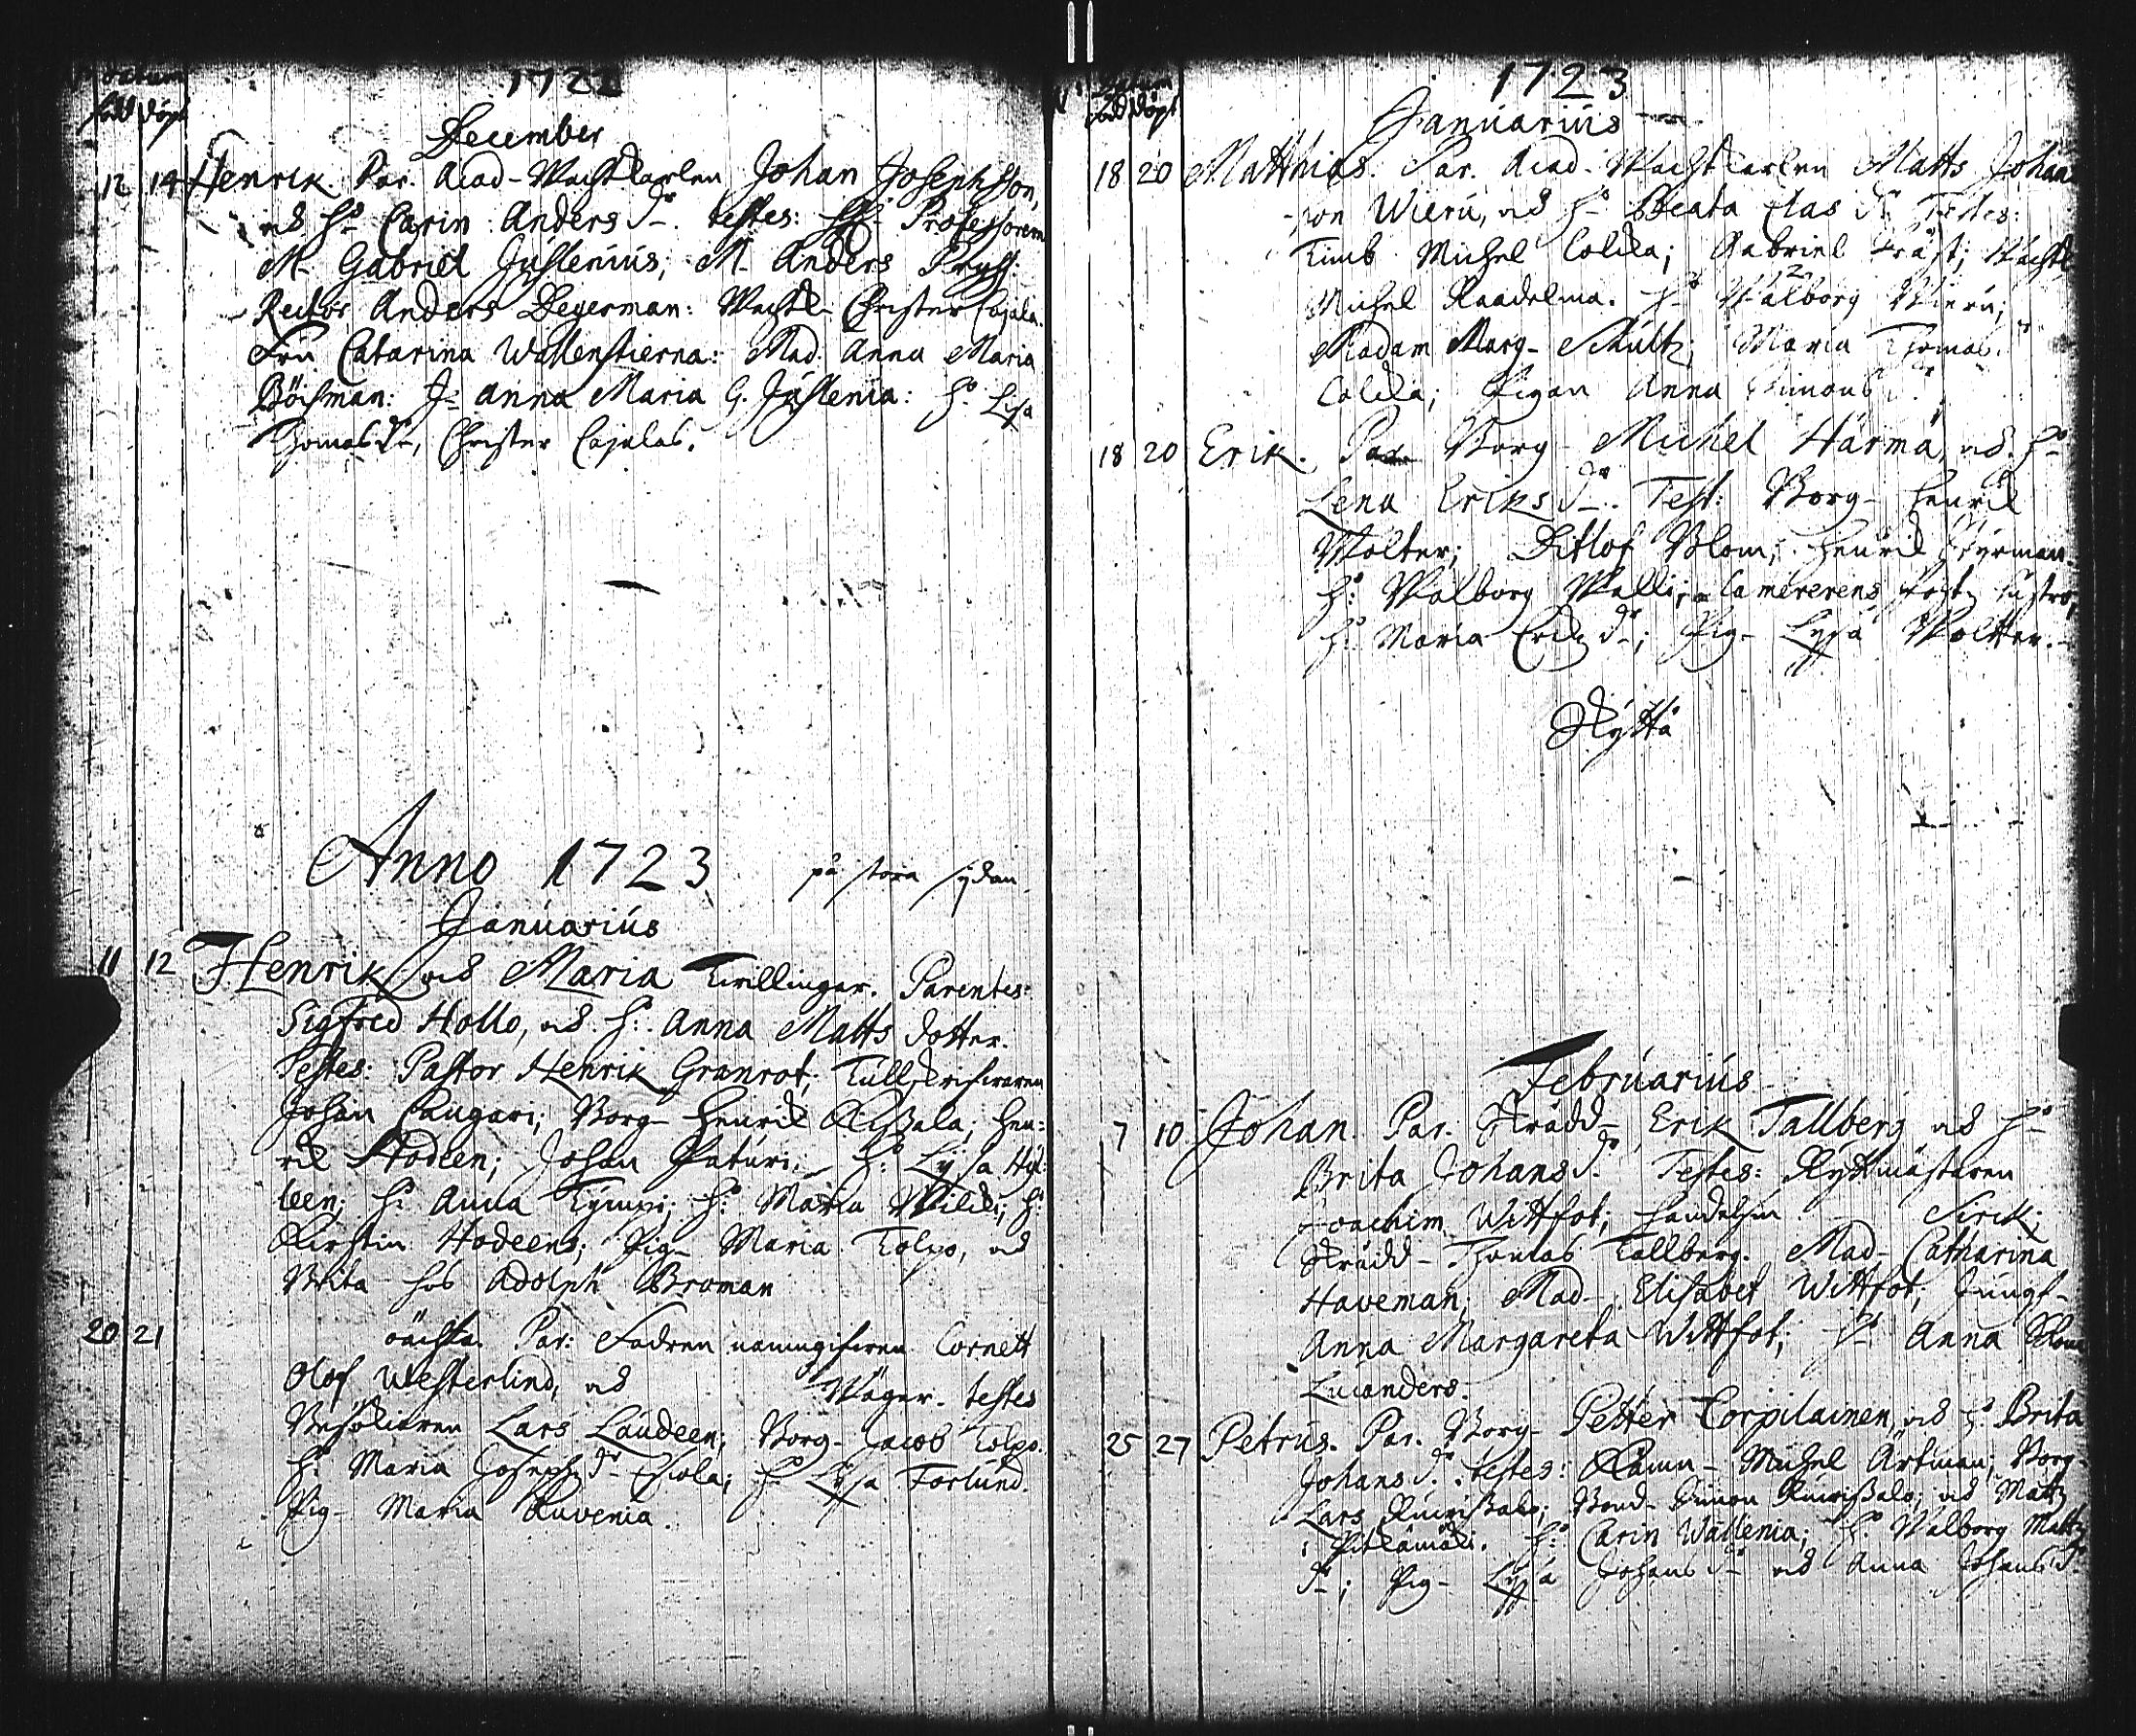 Datum
född döpt
1722
December
12 14 Henrik. Par. Acad-Wachtkarlen Johan Josephsson,
och h:o Carin Anders d:r. testes: Professoren
M. Gabriel Juslenius; M. Anders Pryss.
Rector Anders Degerman: Wachtk. Christer Cajala.
Fru Catarina Wallenstierna: Mad. Anna Maria
Böchman: J: Anna Maria G. Juslenia: h:o Lisa
Thomas d:r, Christer Cajalas.
Anno 1723 på stora sydan
Januarius
11 12 Henrik och Maria Tvillingar. Parentes:
Sigfred Hollo, och h:o Anna Matts dotter.
Testes: Pastor Henrik Granrot; Tullskrifwaren
Johan Caugari; Borg- Henrik Kissala; Hen:
rik Hodeen; Johan Paturi; h:o Lysa Hyl:
leen; h:o Anna Tÿmpi; h:o Maria Wildi; h:o
Kirstin Hodeens; Pig- Maria Tolpo, och
Brita hos Adolph Broman
20 21 oächta. Par: Fadren namngifwen Cornett
Olof Westerlind, och Wäger. testes
Besökiaren Lars Laudeen; Borg- Jacob Tolpo.
h:o Maria Josephs d:r Eskola; h:o Lysa Forlund.
Pig- Maria Ruvenia.
Datum
född döpt
1723
Januarius
18 20 Matthias. Par. Acad-Wachtkarlen Matts Johan
son Wieru, och h:o Beata Clas d:r Testes:
Timb Michel Colcka; Gabriel Fräst; Wachtk
Michel Raadelma. h:o Walborg Wieru;
Madam Marg- Schultz; Maria Thomas d:r
Colcka; Pigan Anna Simons d:r
18 20 Erik. Par. Borg- Michel Härmä, och h:o
Lena Eriks d:r. Test: Borg- Henrik
Wolter; Ditlof Blom; Henrik Styrman.
h:o Walborg Walli; Camererens Hustro,
h:o Maria Erichs d:r; Pig- Lyssa Woltter.
Skyttä
Februarius
7 10 Johan. Par. Skrädd- Erik Tallberg och h:o
Brita Johans d:r Testes: Ryttmästaren
Joachim Wittfot; Handelsm Sirck;
Skrädd- Thomas Tallberg. Mad- Catharina
Haveman; Mad- Elisabet Wittfot; Jungf-
Anna Margareta Wittfot; Anna
Lucanders.
25 27 Petrus. Par. Borg- Petter Corpilainen, och h:o Brita
Johans d:r. testes: Kamn- Michel Artman; Borg-
Lars Ruoissalo; Bond- Simon Ruoissalo; och Matts
Pitkämäki. h:o Carin Wallenia; h:o Walborg Matts
d:r; Pig- Lyssa Johans d:r och Anna Johans d:r